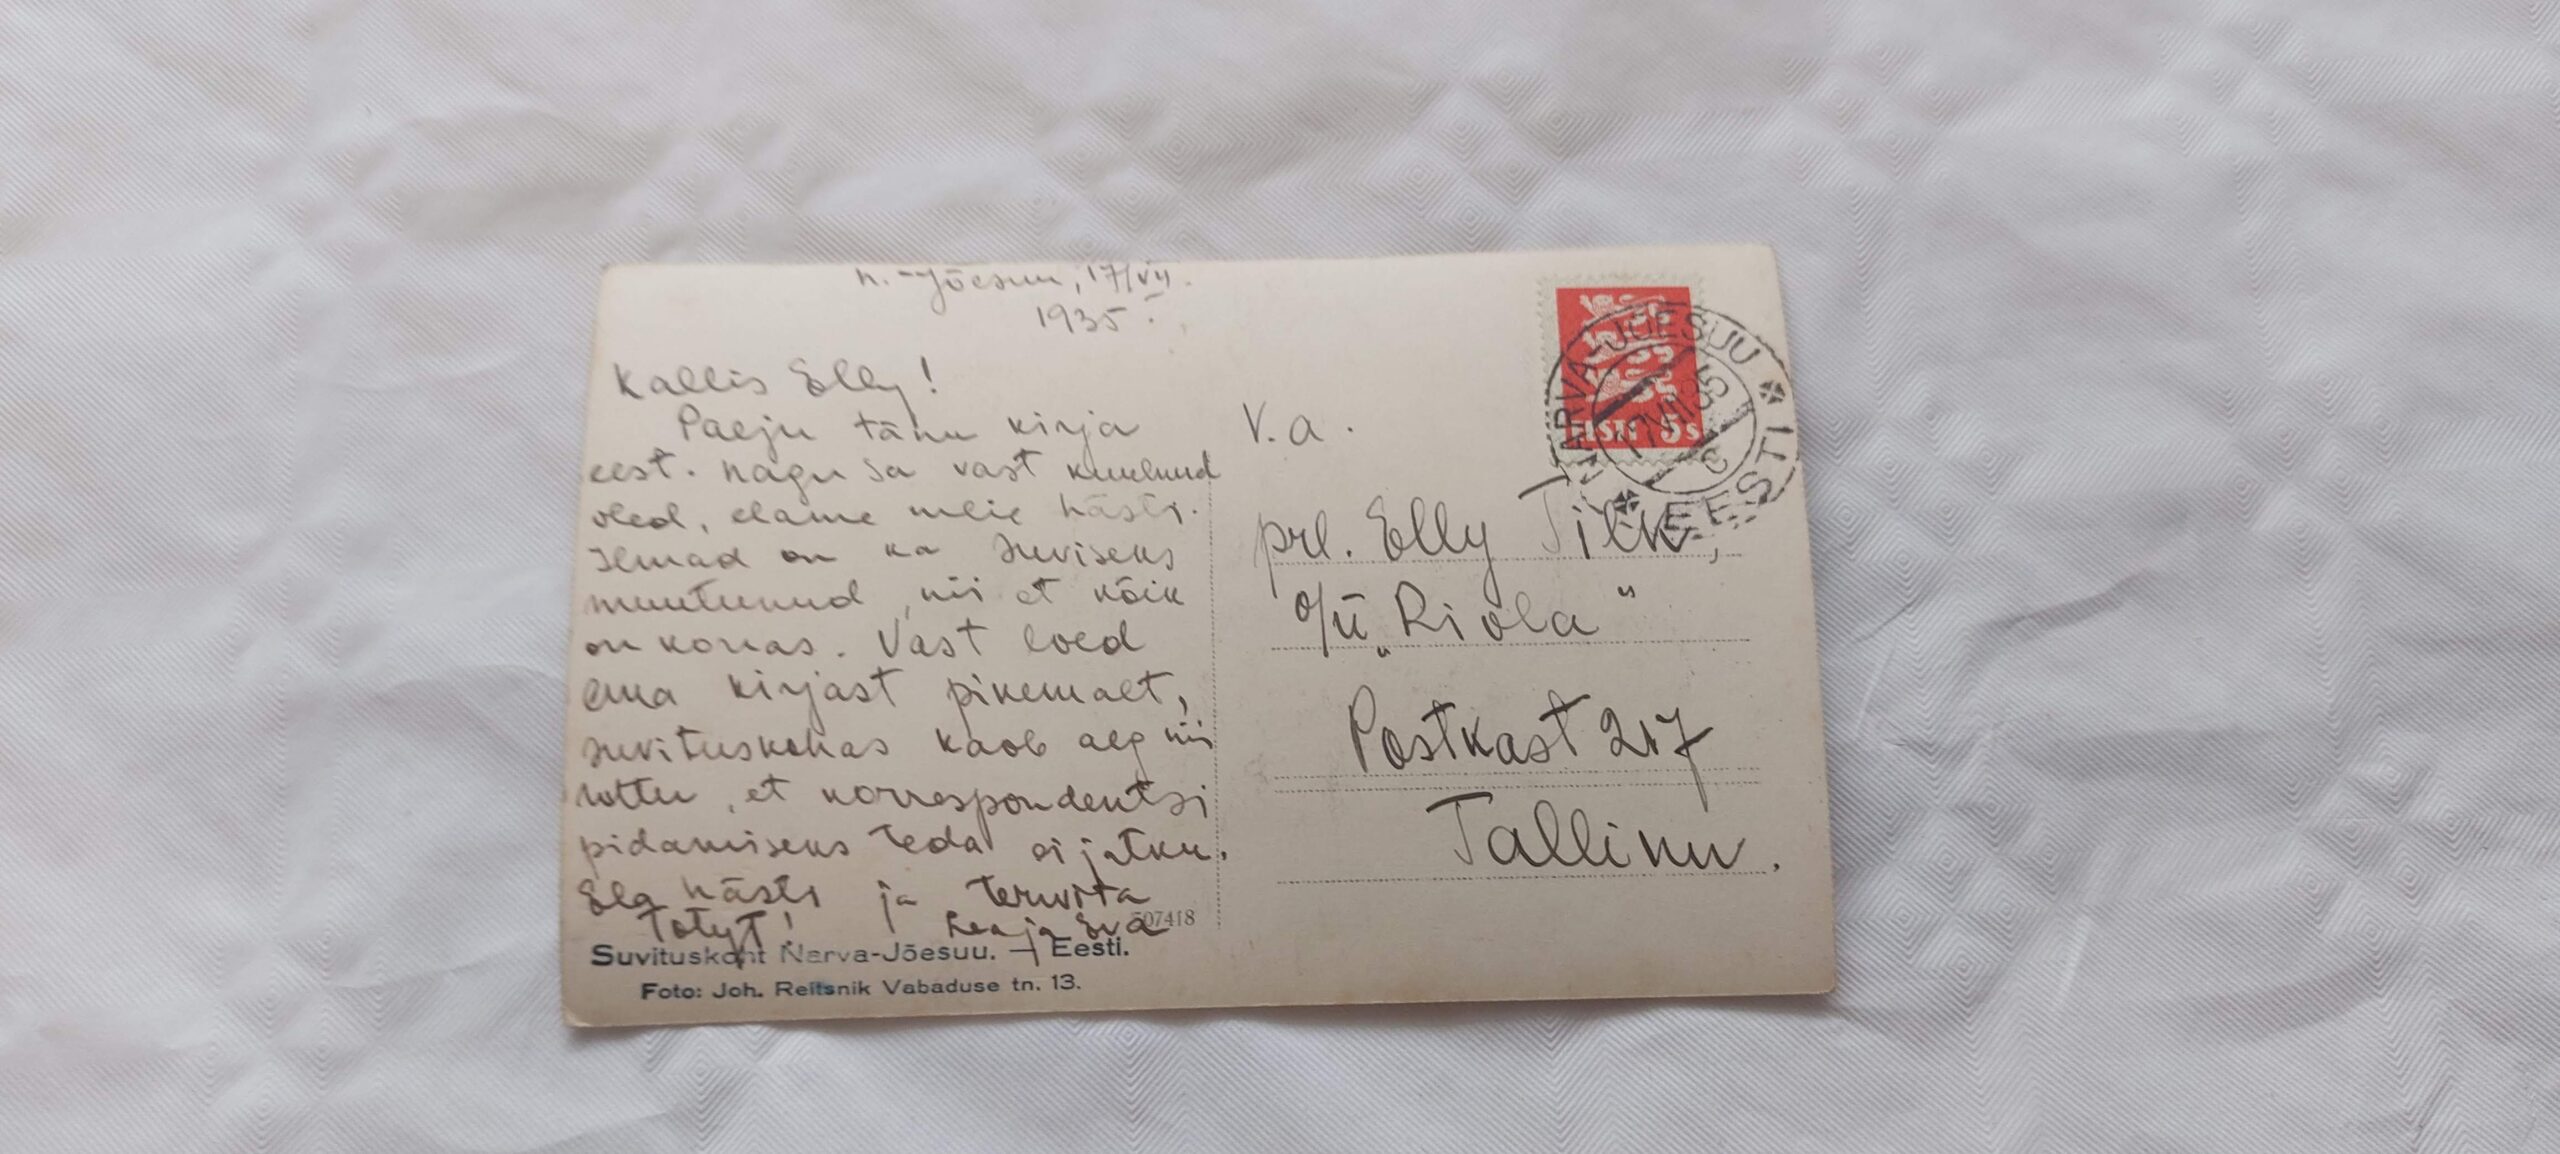 N.-Jõesuu, 17/VII.
1935.
Kallis Elly!
Palju tänu kirja
eest. Nagu Sa vast kuulnud
oled, elame meie hästi.
Ilmad on ka suviseks
muutunud, nii et kõik
on korras. Vast loed
ema kirjast pikemalt,
suvituskohas kaob aeg nii
ruttu, et korrespondentsi
pidamiseks teda ei jätku.
Ela hästi ja tervita
Totyt! Lea ja Eva
507418
Suvituskoht Narva-Jõesuu. — Eesti.
Foto: Joh. Reitsnik Vabaduse tn. 13.
EESTI 5s
NARVA-JÕESUU
17.VII.35
EESTI
V.a.
prl. Elly Tilk,
o/ü „Riola"
Postkast 217
Tallinn.